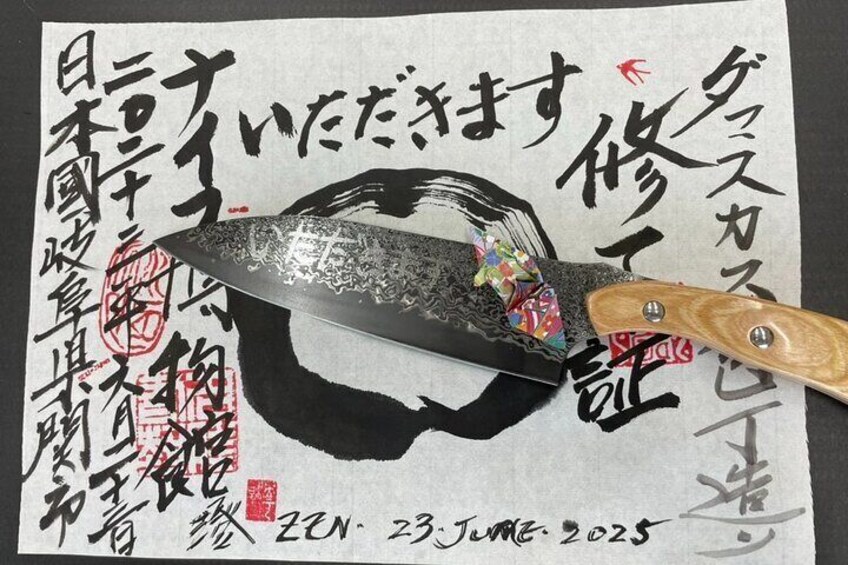 ダマスカス包丁造り
修了証
いただきます
いただきます
ナイフ博物館
二〇二十年六月二十
日本國岐阜県関市
ZEN. 23. JUNE. 2025